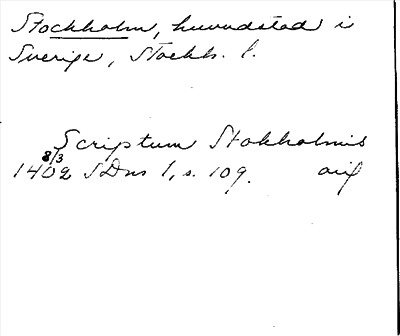 Stockholm, huvudstad i
Sverige, Stockh. l.
Scriptum Stokholmis
8/3
1402 SDns 1, s. 109. avil